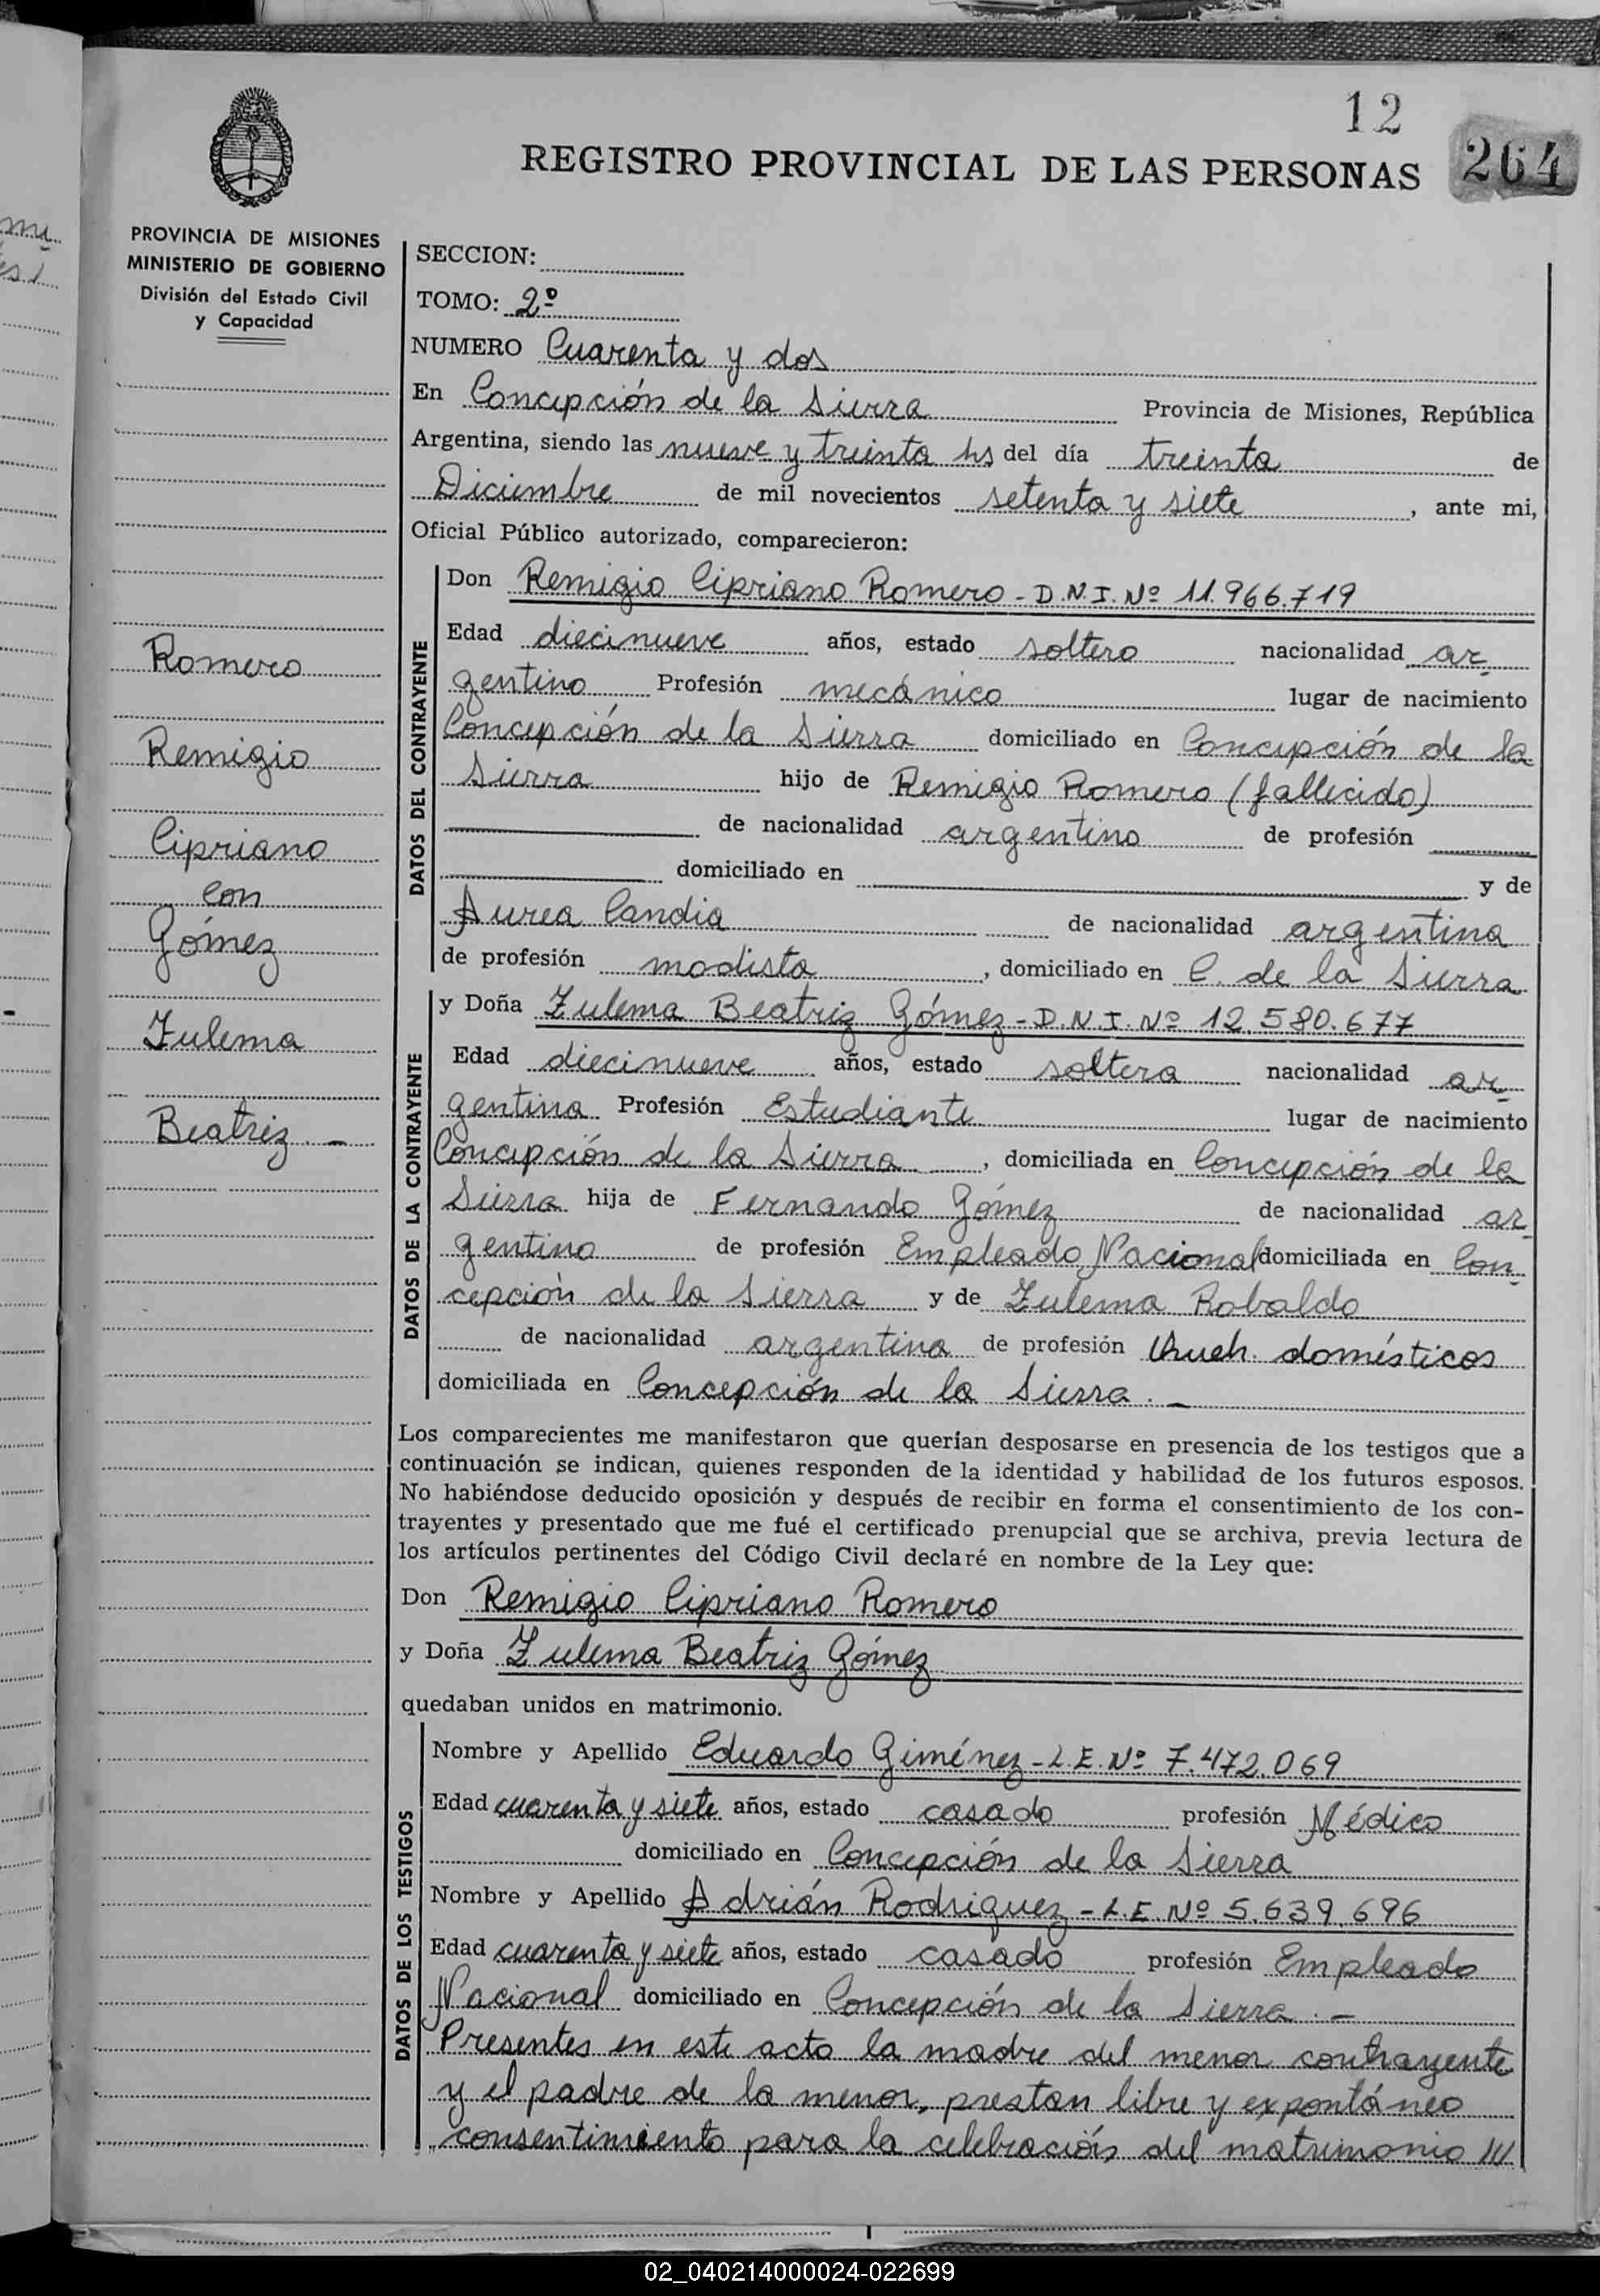 12
REGISTRO PROVINCIAL DE LAS PERSONAS 264
PROVINCIA DE MISIONES
MINISTERIO DE GOBIERNO
División del Estado Civil
y Capacidad
Romero
Remigio
Cipriano
con
Gómez
Zulema
Beatriz.-
SECCION:
TOMO: 2º
NUMERO Cuarenta y dos
En Concepción de la Sierra Provincia de Misiones, República
Argentina, siendo las nueve y treinta hs del día treinta de
Diciembre de mil novecientos setenta y siete, ante mi,
Oficial Público autorizado, comparecieron:
DATOS DEL CONTRAYENTE
Don Remigio Cipriano Romero - D.N.I. Nº 11.966.719
Edad diecinueve años, estado soltero nacionalidad ar
gentino Profesión mecánico lugar de nacimiento
Concepción de la Sierra domiciliado en Concepción de la
Sierra hijo de Remigio Romero (fallecido)
de nacionalidad argentino de profesión
domiciliado en y de
Aurea Candia de nacionalidad argentina
de profesión modista, domiciliado en C. de la Sierra
DATOS DE LA CONTRAYENTE
y Doña Zulema Beatriz Gómez - D.N.I. Nº 12.580.677
Edad diecinueve años, estado soltera nacionalidad ar
gentina Profesión Estudiante lugar de nacimiento
Concepción de la Sierra, domiciliada en Concepción de la
Sierra hija de Fernando Gómez de nacionalidad ar
gentino de profesión Empleado Nacional domiciliada en Con
cepción de la Sierra y de Zulema Robaldo
de nacionalidad argentina de profesión Queh. domésticos
domiciliada en Concepción de la Sierra.-
Los comparecientes me manifestaron que querían desposarse en presencia de los testigos que a
continuación se indican, quienes responden de la identidad y habilidad de los futuros esposos.
No habiéndose deducido oposición y después de recibir en forma el consentimiento de los con-
trayentes y presentado que me fué el certificado prenupcial que se archiva, previa lectura de
los artículos pertinentes del Código Civil declaré en nombre de la Ley que:
Don Remigio Cipriano Romero
y Doña Zulema Beatriz Gómez
quedaban unidos en matrimonio.
DATOS DE LOS TESTIGOS
Nombre y Apellido Eduardo Giménez - L.E. Nº 7.472.069
Edad cuarenta y siete años, estado casado profesión Médico
domiciliado en Concepción de la Sierra
Nombre y Apellido Adrián Rodriguez - L.E. Nº 5.639.696
Edad cuarenta y siete años, estado casado profesión Empleado
Nacional domiciliado en Concepción de la Sierra.-
Presentes en este acto la madre del menor contrayente
y el padre de la menor, prestan libre y expontáneo
consentimiento para la celebración del matrimonio ///
02_040214000024-022699